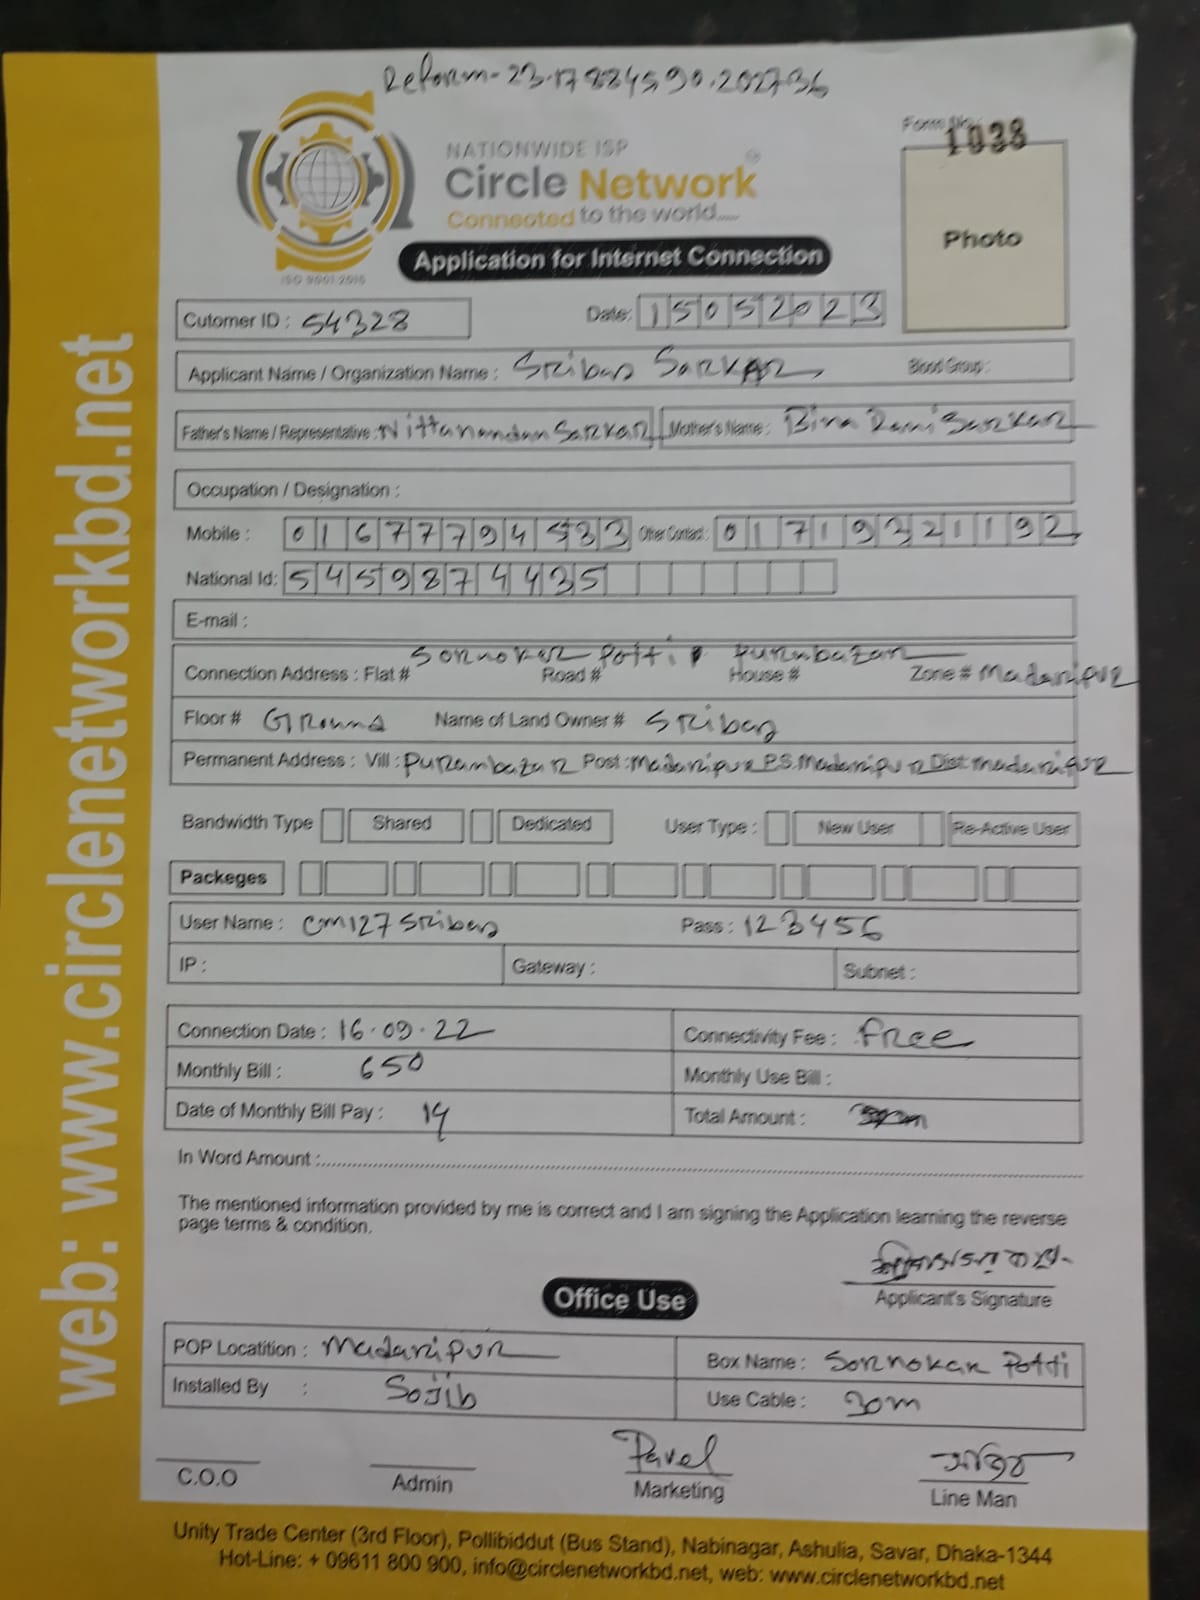 Reform-23.17884590.202736
Form No: 1038
NATIONWIDE ISP
Circle Network
Connected to the world.....
ISO 9001:2015
Photo
Application for Internet Connection
Cutomer ID : 54328 Date: 15052023
Applicant Name / Organization Name : Sribas Sarkar Blood Group :
Father's Name / Representative : Nittanandan Sarkar Mother's Name : Bina Rani Sarkar
Occupation / Designation :
Mobile : 01677794533 Other Contact : 01719321192
National Id: 5459874435
E-mail :
Sornoker Potti, Puranbazar
Connection Address : Flat # Road # House # Zone # Madaripur
Floor # Ground Name of Land Owner # Sribas
Permanent Address : Vill : Puranbazar Post : Madaripur P.S. Madaripur Dist: madaripur
Bandwidth Type Shared Dedicated User Type : New User Re-Active User
Packeges
User Name : cm127sribas Pass : 123456
IP : Gateway : Subnet :
Connection Date : 16.09.22 Connectivity Fee : free
Monthly Bill : 650 Monthly Use Bill :
Date of Monthly Bill Pay : 14 Total Amount :
In Word Amount :
The mentioned information provided by me is correct and I am signing the Application learning the reverse
page terms & condition.
Applicant's Signature
Office Use
POP Locatition : Madaripur Box Name : Sornokar Potti
Installed By : Sojib Use Cable : 30m
Pavel
C.O.O Admin Marketing Line Man
Unity Trade Center (3rd Floor), Pollibiddut (Bus Stand), Nabinagar, Ashulia, Savar, Dhaka-1344
Hot-Line: + 09611 800 900, info@circlenetworkbd.net, web: www.circlenetworkbd.net
web: www.circlenetworkbd.net